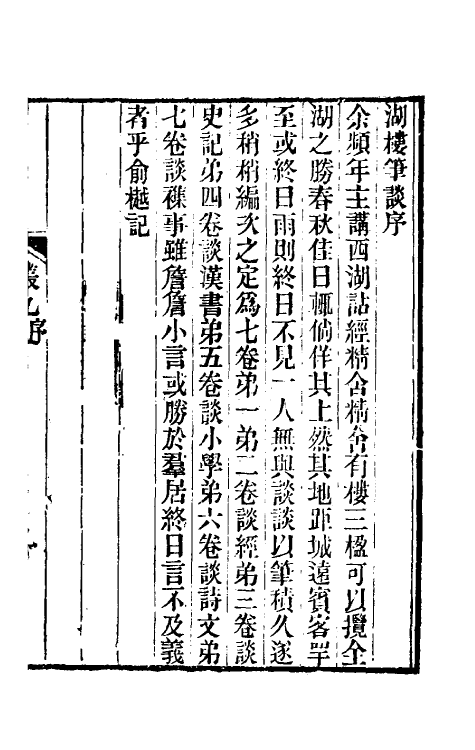 湖樓筆談序
余頻年主講西湖詁經精舍精舍有樓三楹可以攬全
湖之勝春秋佳日輒倘佯其上然其地距城遠賓客罕
至或終日雨則終日不見一人無與談談以筆積久遂
多稍稍編次之定爲七卷弟一弟二卷談經弟三卷談
史記弟四卷談漢書弟五卷談小學弟六卷談詩文弟
七卷談襍事雖詹詹小言或勝於羣居終日言不及義
者乎俞樾記